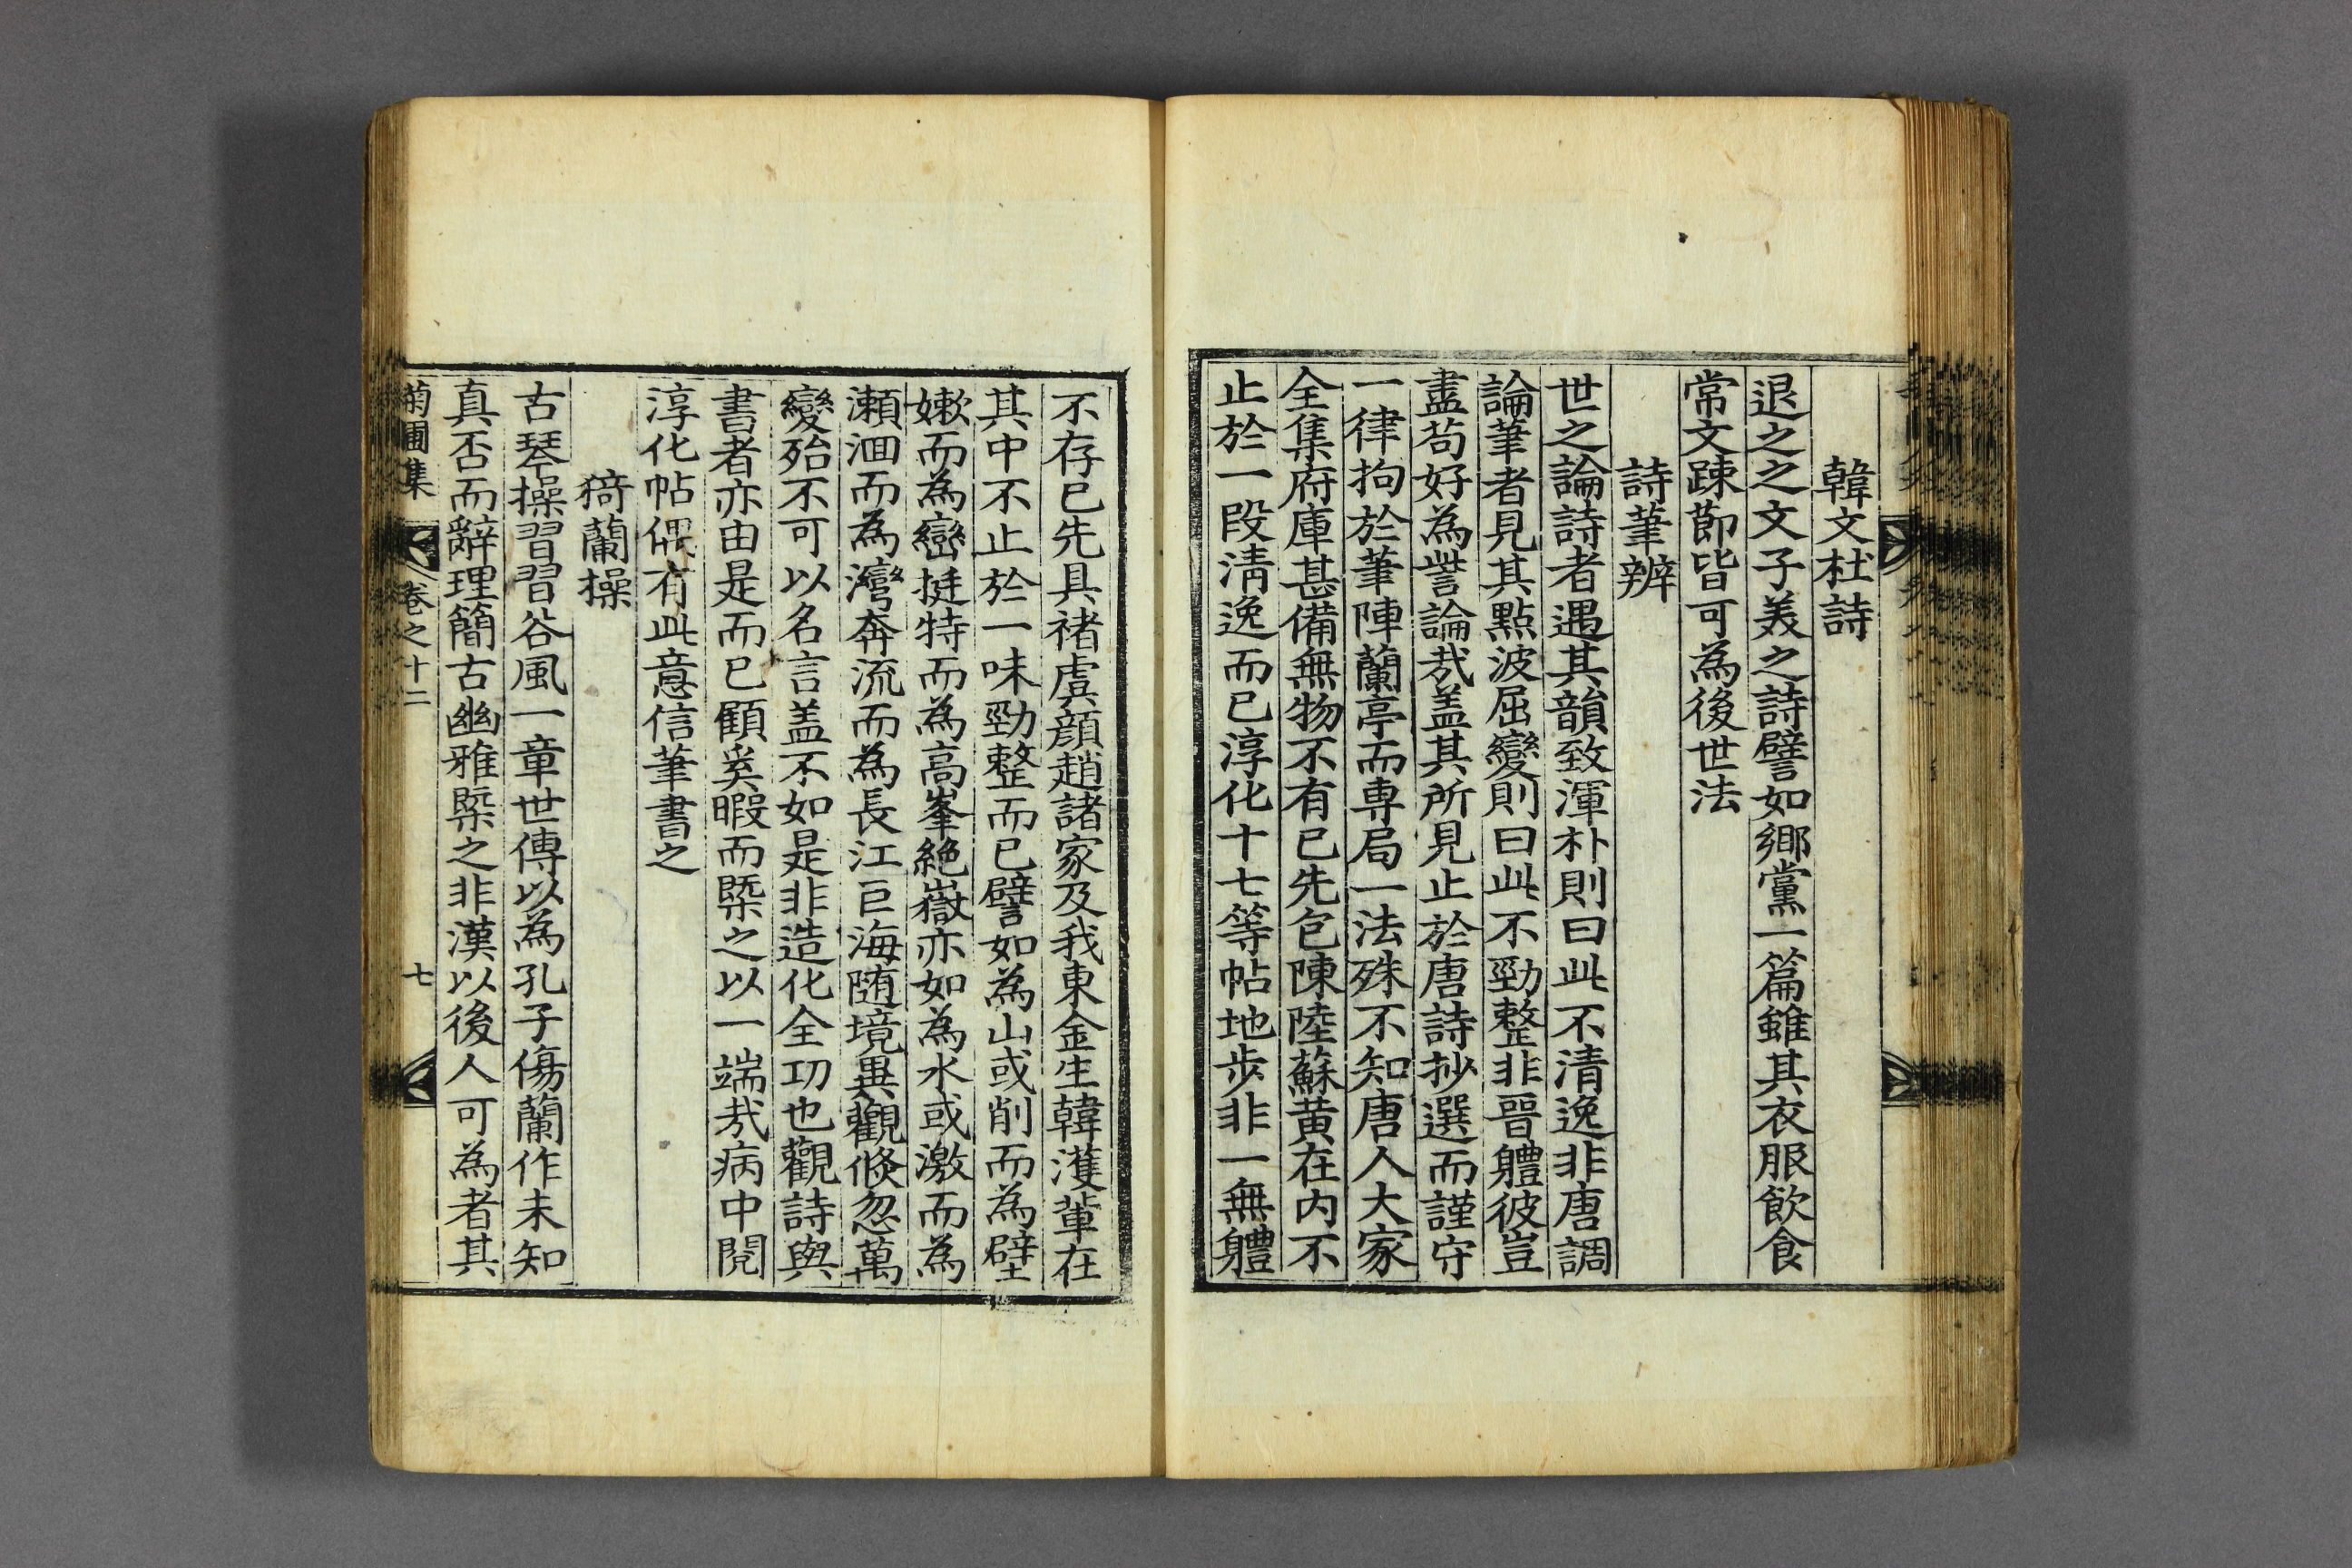 韓文杜詩
退之之文子美之詩譬如鄉黨一篇雖其衣服飮食
常文踈節皆可為後世法
詩筆辨
世之論詩者遇其韻致渾朴則曰此不清逸非唐調
論筆者見其點波屈變則曰此不勁整非晉軆彼豈
盡苟好為訾論㢤盖其所見止於唐詩抄選而謹守
一律拘於筆陣蘭亭而專局一法殊不知唐人大家
全集府庫甚備無物不有已先包陳陸蘇黃在內不
止於一段淸逸而已淳化十七等帖地步非一無軆
不存已先具褚虞顏趙諸家及我東金生韓濩輩在
其中不止於一味勁整而已譬如為山或削而為壁
嫰而為巒挺特而為高峯絶嶽亦如為水或激而為
瀨洄而為灣奔流而為長江巨海随境異觀倏忽萬
變殆不可以名言盖不如是非造化全功也觀詩與
書者亦由是而已顧奚暇而槩之以一端㢤病中閱
淳化帖偶有此意信筆書之
猗蘭操
古琴操習習谷風一章世傳以為孔子傷蘭作未知
真否而辭理簡古幽雅槩之非漢以後人可為者其
菊圃集
卷之十二
七